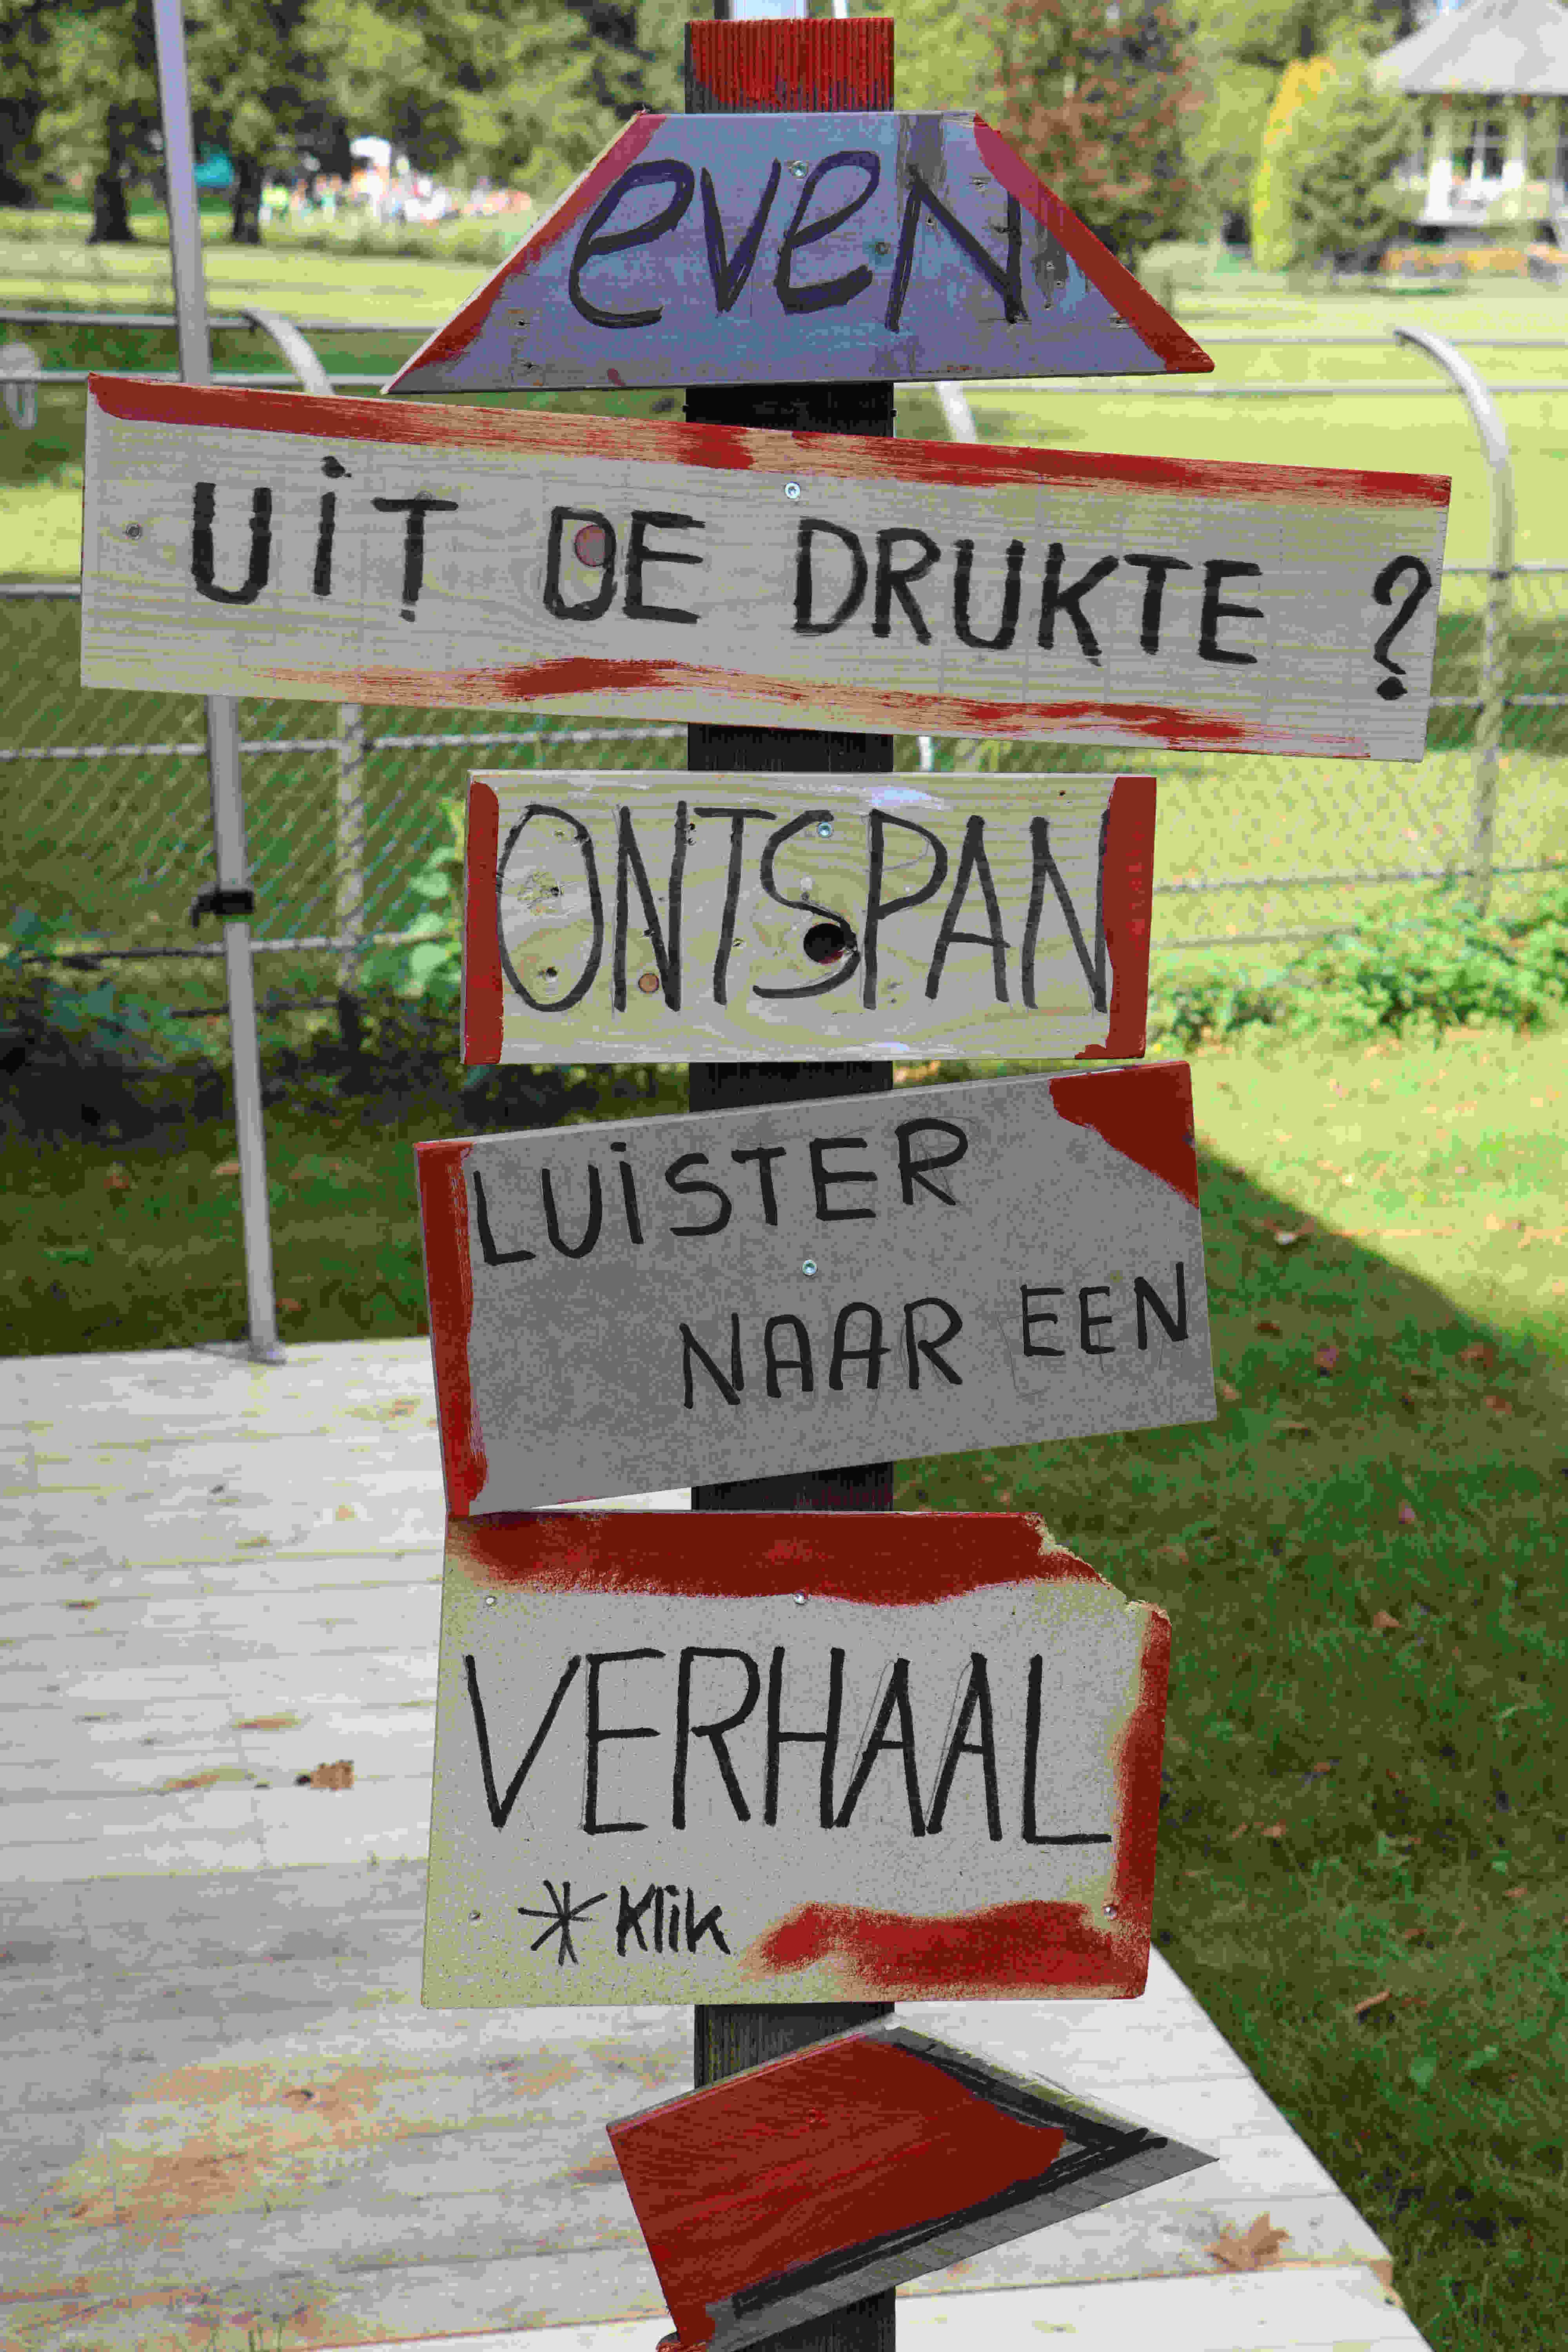 eveN
UiT DE DRUKTE ?
ONTSPAN
LUiSTER
NAAR EEN
VERHAAL
* Klik